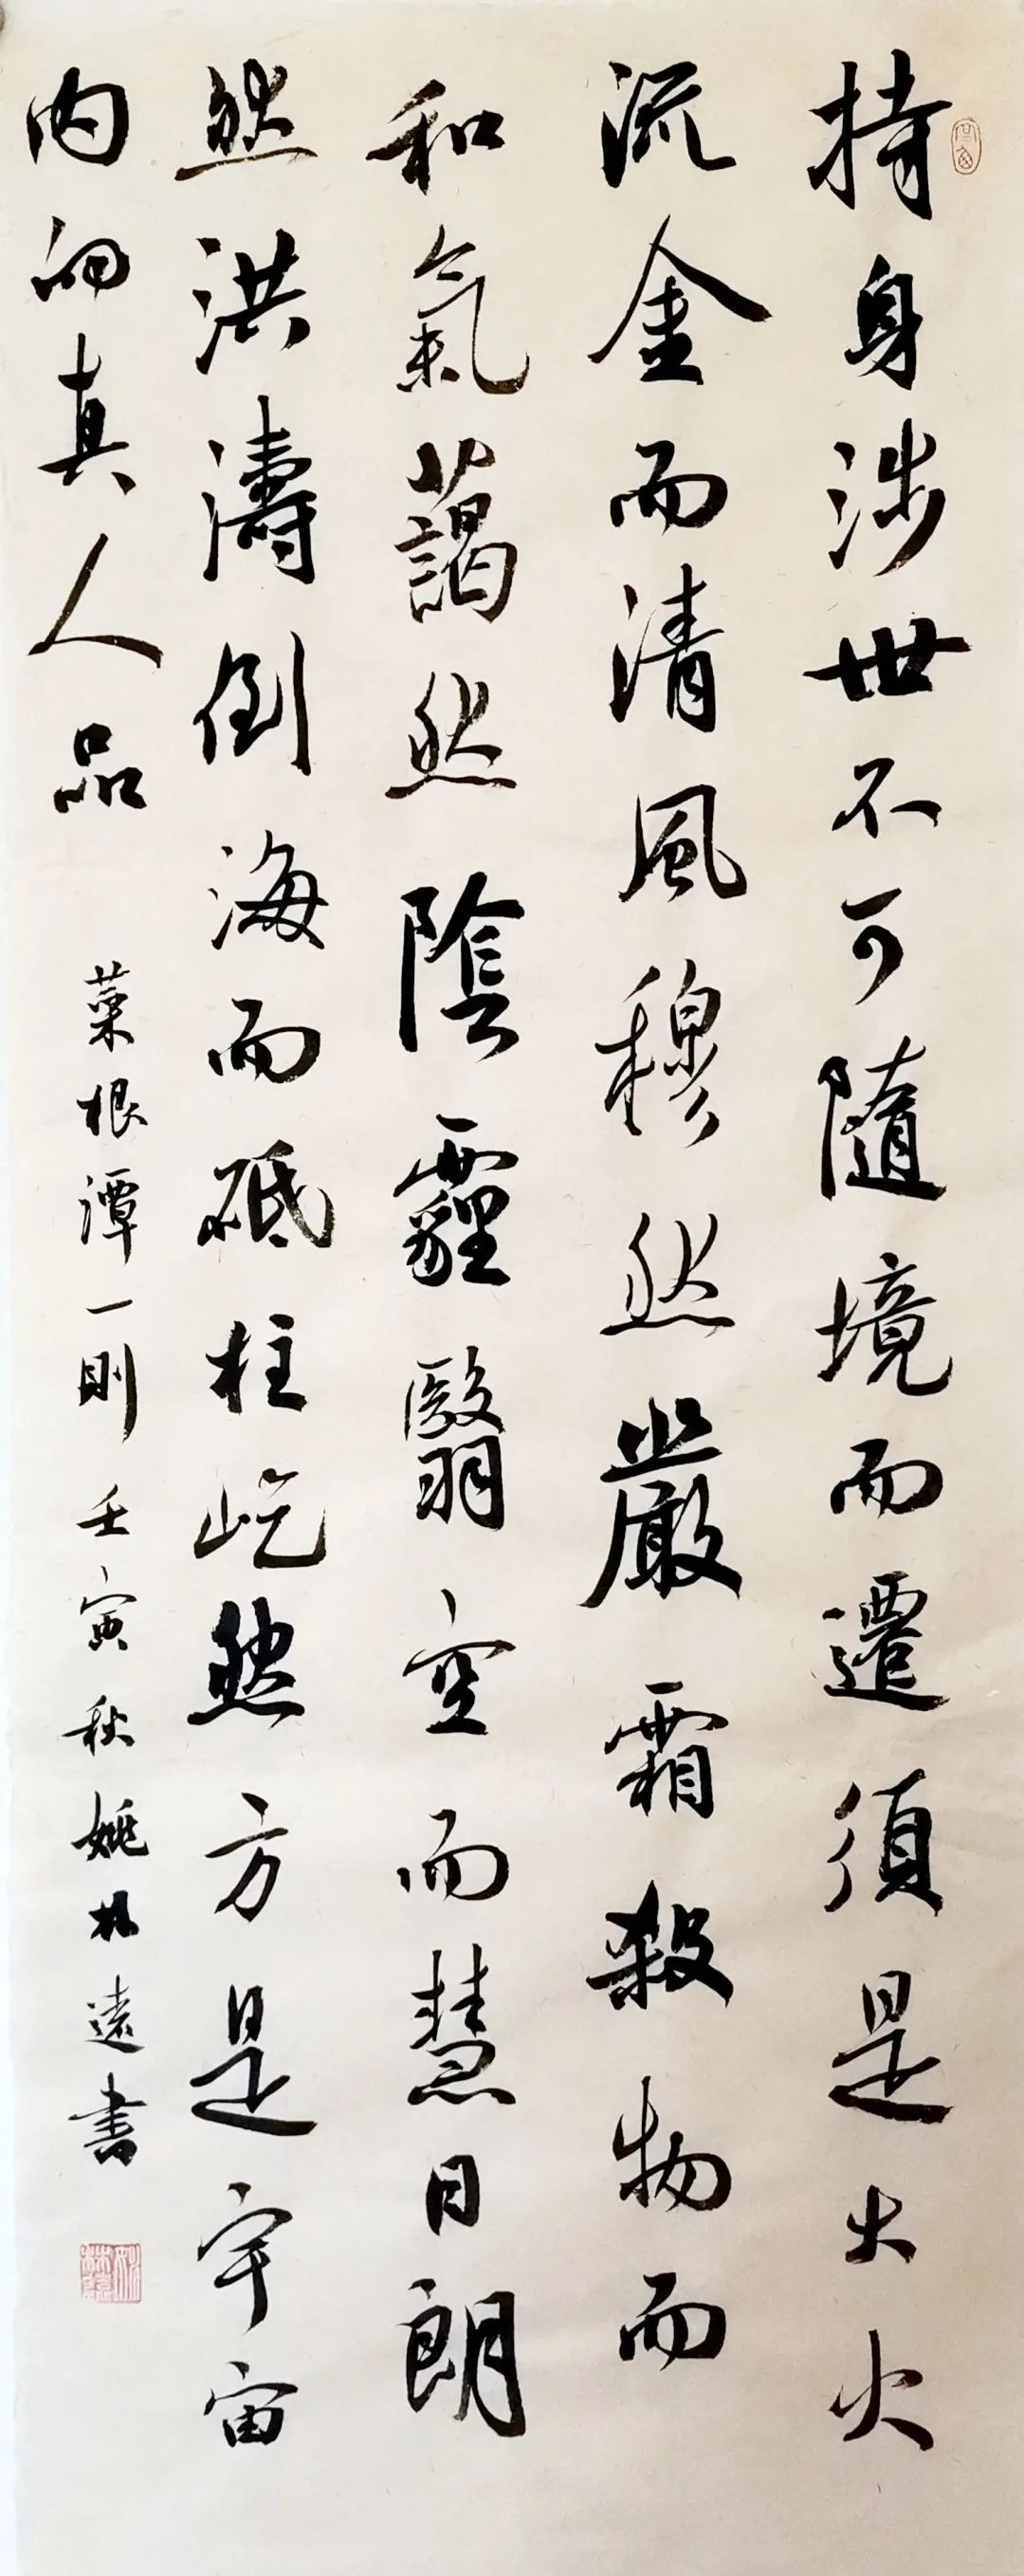 持身涉世不可隨境而遷須是大火
流金而清風穆然嚴霜殺物而
和氣藹然陰霾翳空而慧日朗
然洪濤倒海而砥柱屹然方是宇宙
內的真人品
菜根譚一則壬寅秋姚林遠書